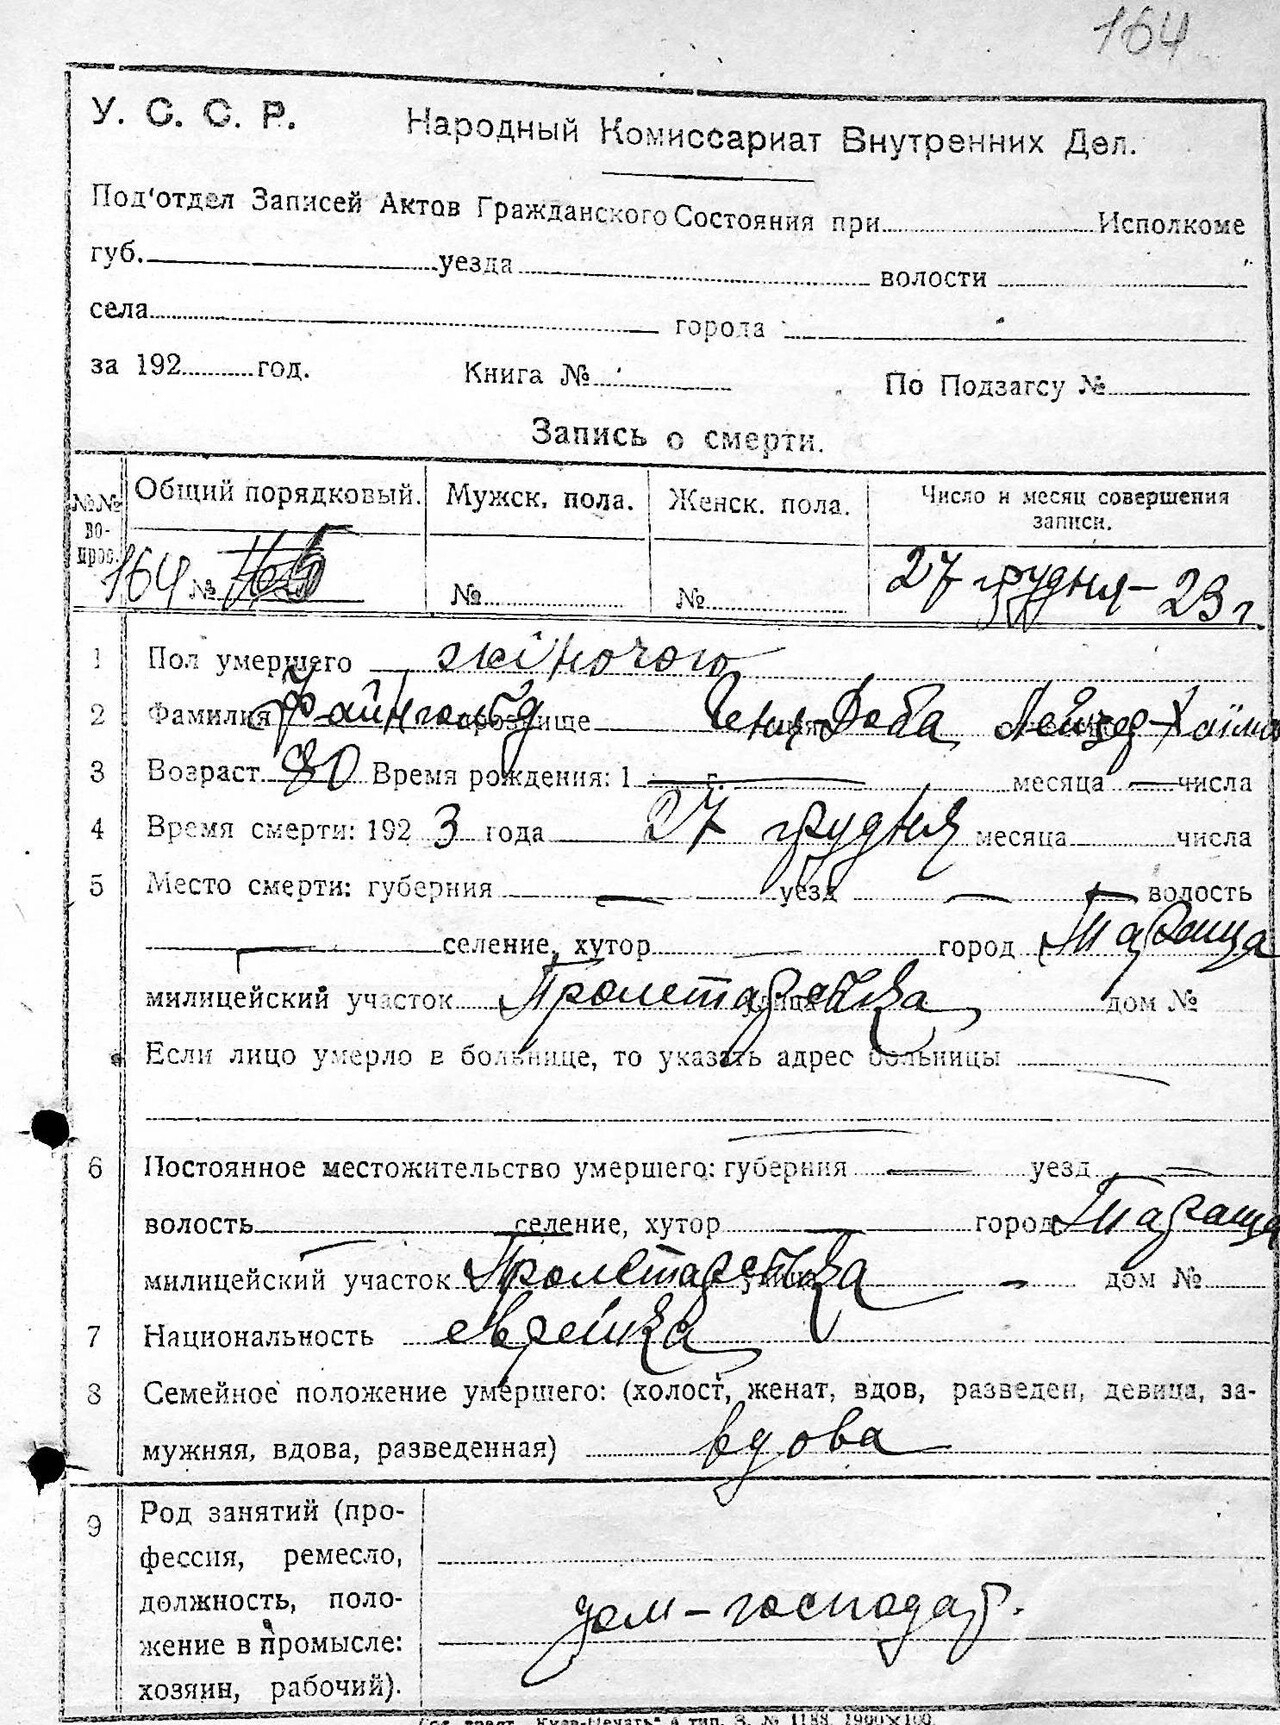 164
У. С. С. Р. Народный Комиссариат Внутренних Дел.
Под'отдел Записей Актов Гражданского Состояния при Исполкоме
губ. уезда волости
села города
за 192 год. Книга № По Подзагсу №
Запись о смерти.
№№ во-прос. Общий порядковый. Мужск. пола. Женск. пола. Число и месяц совершения записи.
164 № 165 № № 27 грудня – 23 г.
1 Пол умершего жіночого
2 Фамилия Файнгольд прозвище имя Доба Лейзер-Хаїмов
3 Возраст 80 Время рождения: 1 — г. месяца — числа
4 Время смерти: 192 3 года 27 грудня месяца числа
5 Место смерти: губерния — уезд — — волость
— селение, хутор — город Тараща
милицейский участок Пролетарська улица дом №
Если лицо умерло в больнице, то указать адрес больницы —
—
6 Постоянное местожительство умершего: губерния — уезд —
волость — селение, хутор — город Тараща
милицейский участок Пролетарська улица — дом №
7 Национальность еврейка
8 Семейное положение умершего: (холост, женат, вдов, разведен, девица, за-
мужняя, вдова, разведенная) вдова
9 Род занятий (про-
фессия, ремесло,
должность, поло-
жение в промысле:
хозяин, рабочий).
дом-господар.
"Киев-Печать" 4 тип. З. № 1188. 1900×100.